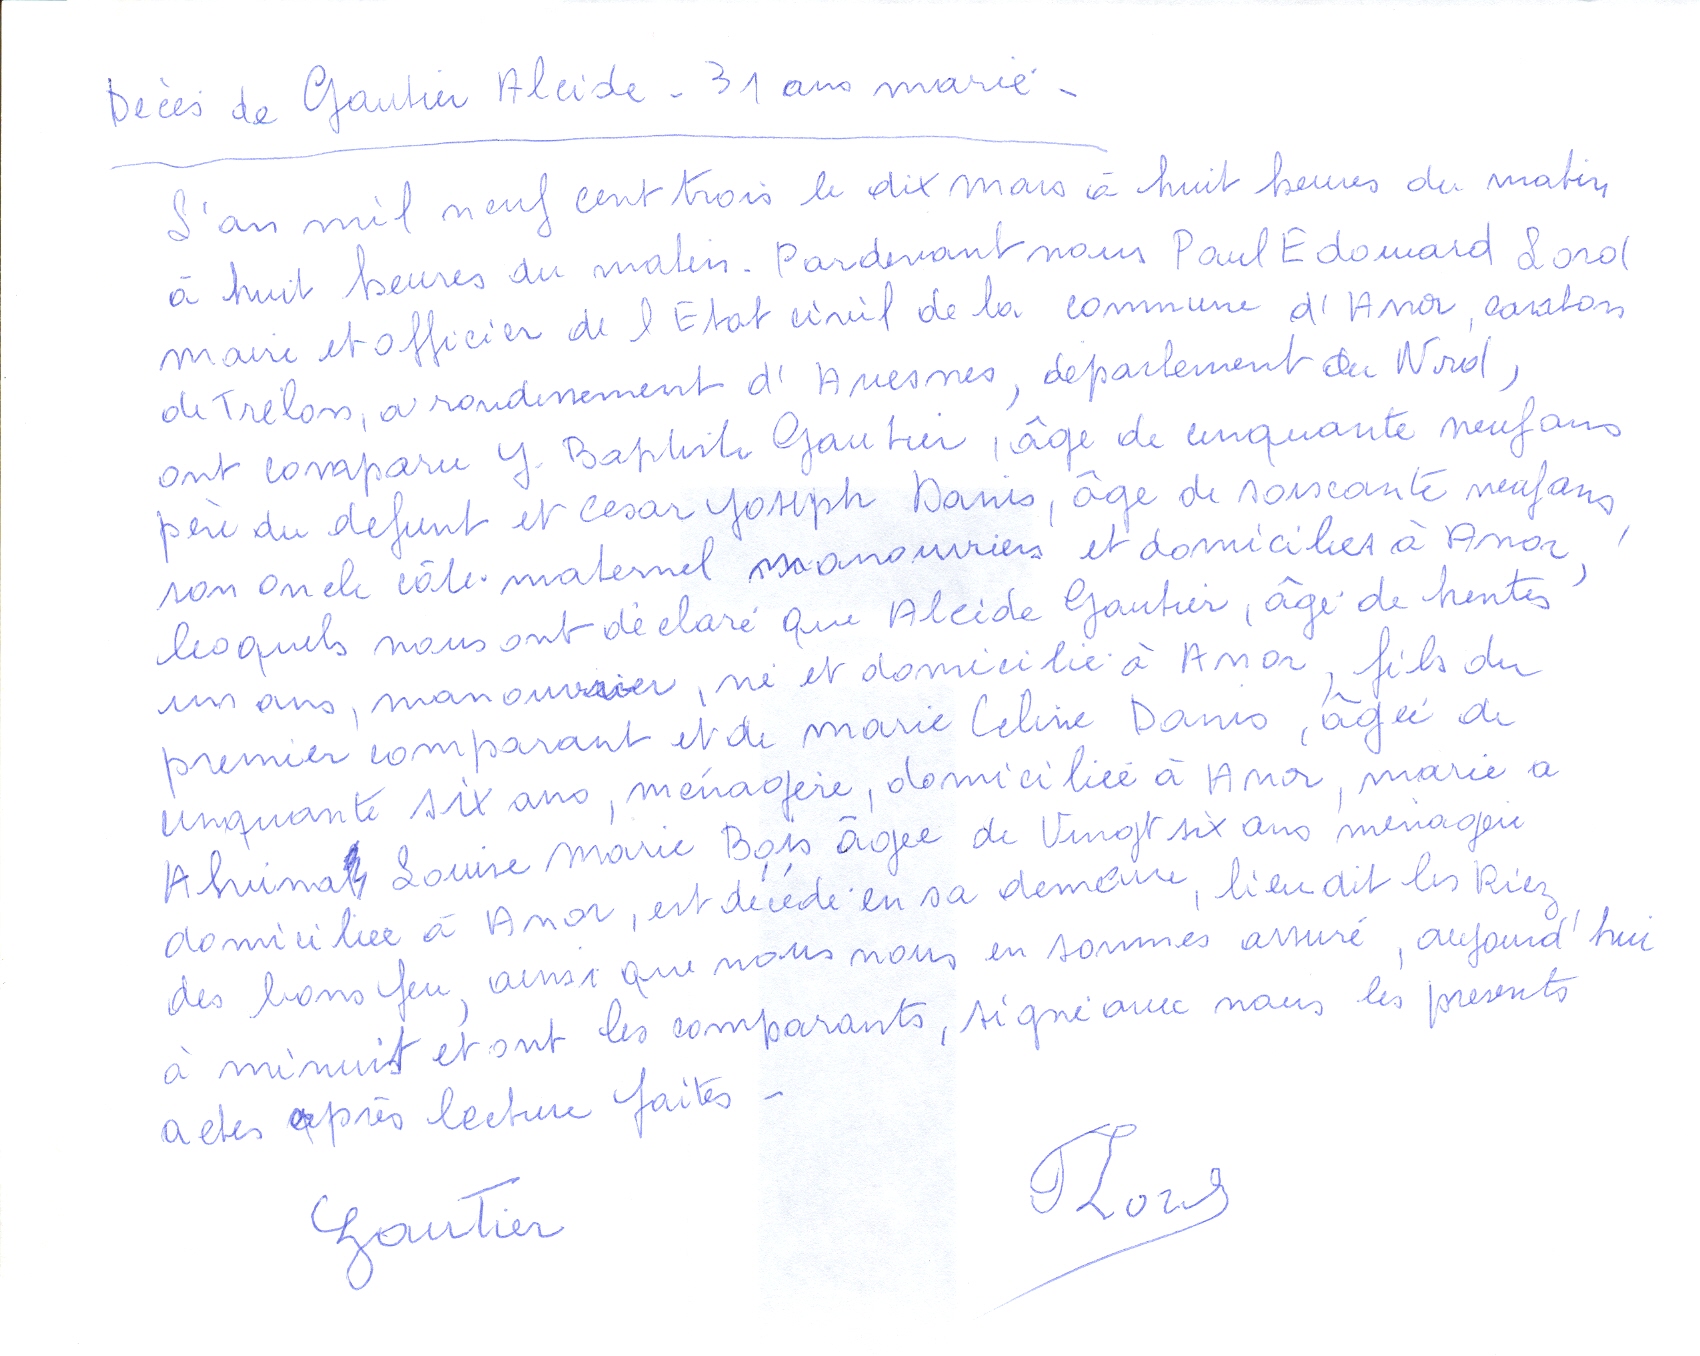 Décès de Gautier Alcide - 31 ans marié -
L'an mil neuf cent trois le dix mars à huit heures du matin
à huit heures du matin. Pardevant nous Paul Edouard Lord
maire et officier de l Etat civil de la commune d'Anor, canton
de Trélon, arrondissement d'Avesnes, département du Nord,
ont comparu J. Baptiste Gautier, âgé de cinquante neuf ans
père du defunt et Cesar Joseph Danis, âgé de soixante neuf ans,
son oncle côté maternel manouvriers et domiciliés à Anor,
lesquels nous ont déclaré que Alcide Gautier, âgé de trentes
un ans, manouvrier, né et domicilié à Anor, fils du
premier comparant et de marie Celine Danis, âgée de
cinquante six ans, ménagère, domiciliée à Anor, marié a
Louise Marie Bois âgée de Vingt six ans ménagère
domiciliée à Anor, est décédé en sa demeure, lieu dit les Riez
des bons feu, ainsi que nous nous en sommes assuré, aujourd'hui
à minuit et ont les comparants, signé avec nous les presents
actes après lecture faites -
Gautier
PLord